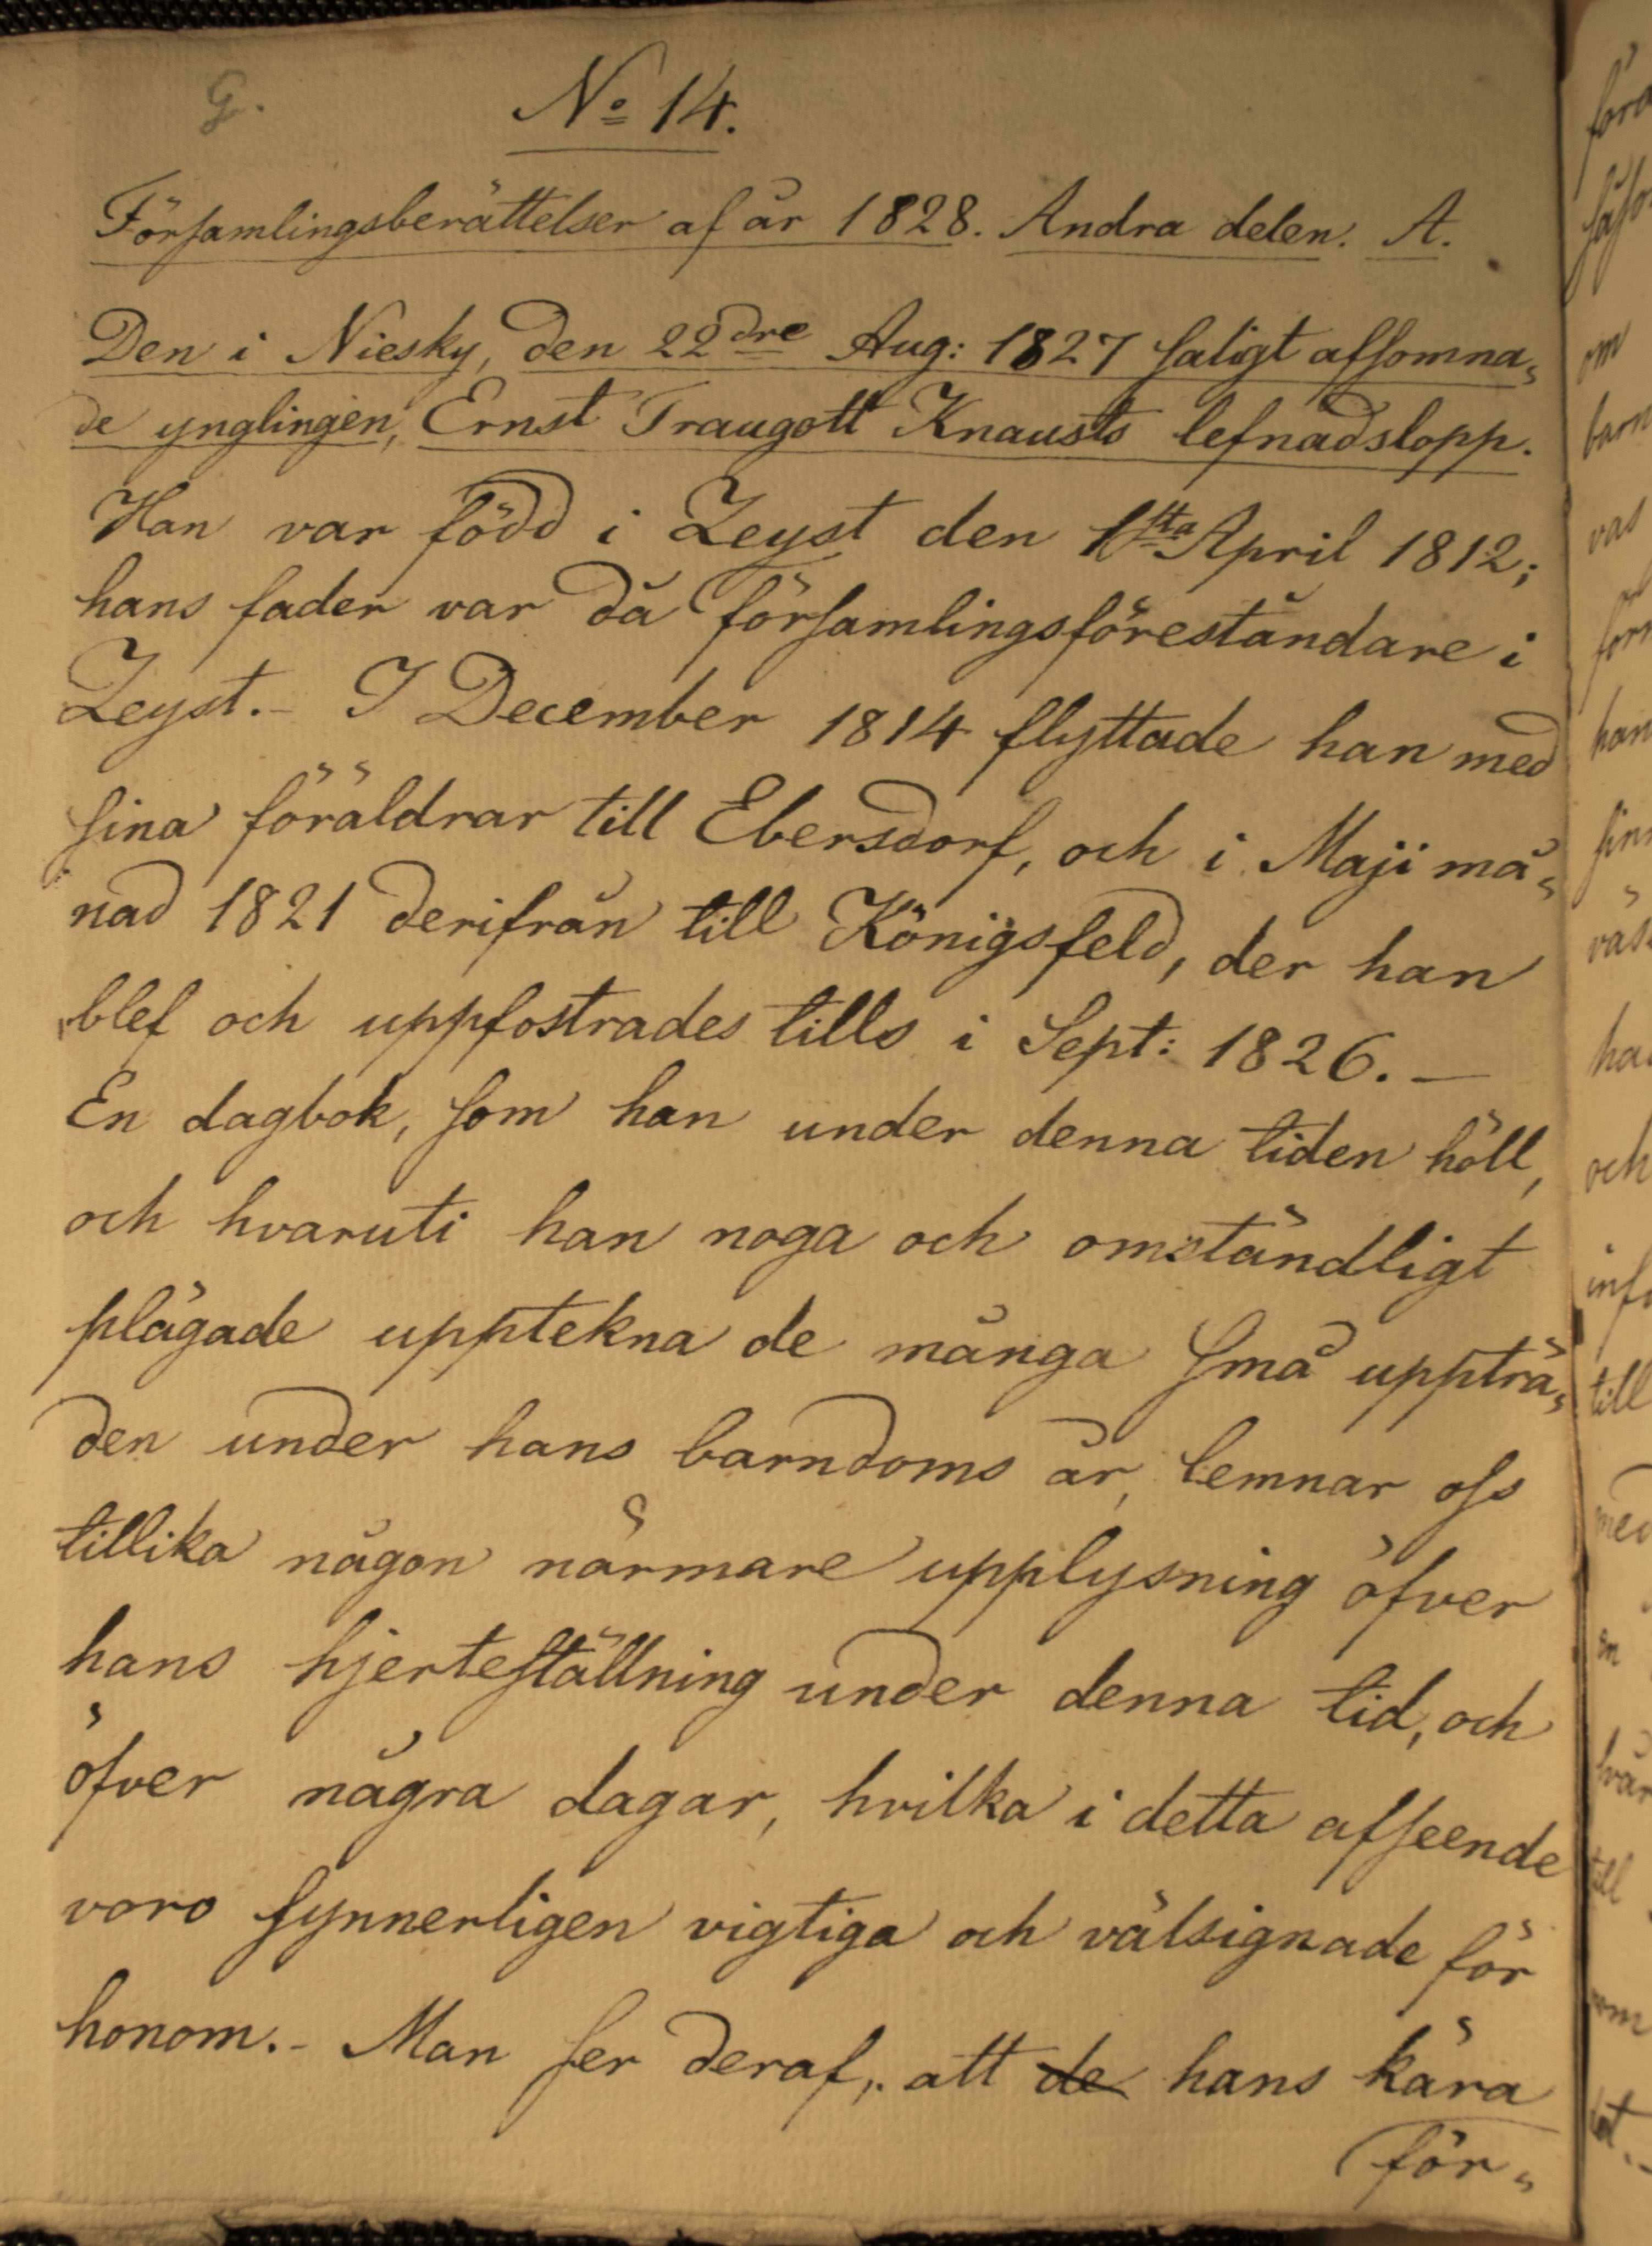 G.
No 14.
Församlingsberättelser af år 1828. Andra delen. A.
Den i Niesky, den 22dre Aug: 1827 saligt afsomna„
de ynglingen, Ernst Traugott Knausts lefnadslopp.
Han var född i Zeyst den 1sta April 1812;
hans fader var då församlingsföreståndare i
Zeyst.- I December 1814 flyttade han med
sina föräldrar till Ebersdorf, och i Maji må„
nad 1821 derifrån till Königsfeld, der han
blef och uppfostrades tills i Sept: 1826. —
En dagbok, som han under denna tiden höll,
och hvaruti han noga och omständligt
plägade upptekna de många små uppträ„
den under hans barndoms år, lemnar oss
tillika någon närmare upplysning öfver
hans hjerteställning under denna tid, och
öfver några dagar, hvilka i detta afseende
voro synnerligen vigtiga och välsignade för
honom.- Man ser deraf, att de hans kära
för„